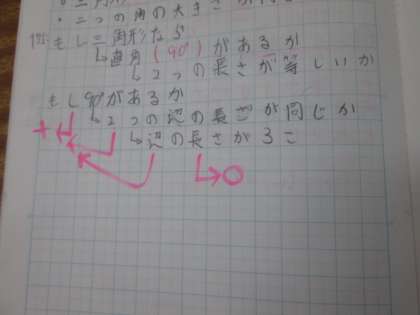 ・二つの角の大きさが
もし三角形なら
↳直角(90°)があるか
↳2つの長さが等しいか
もし90°があるか
↳2つの辺の長さが同じか
↳辺の長さが3こ